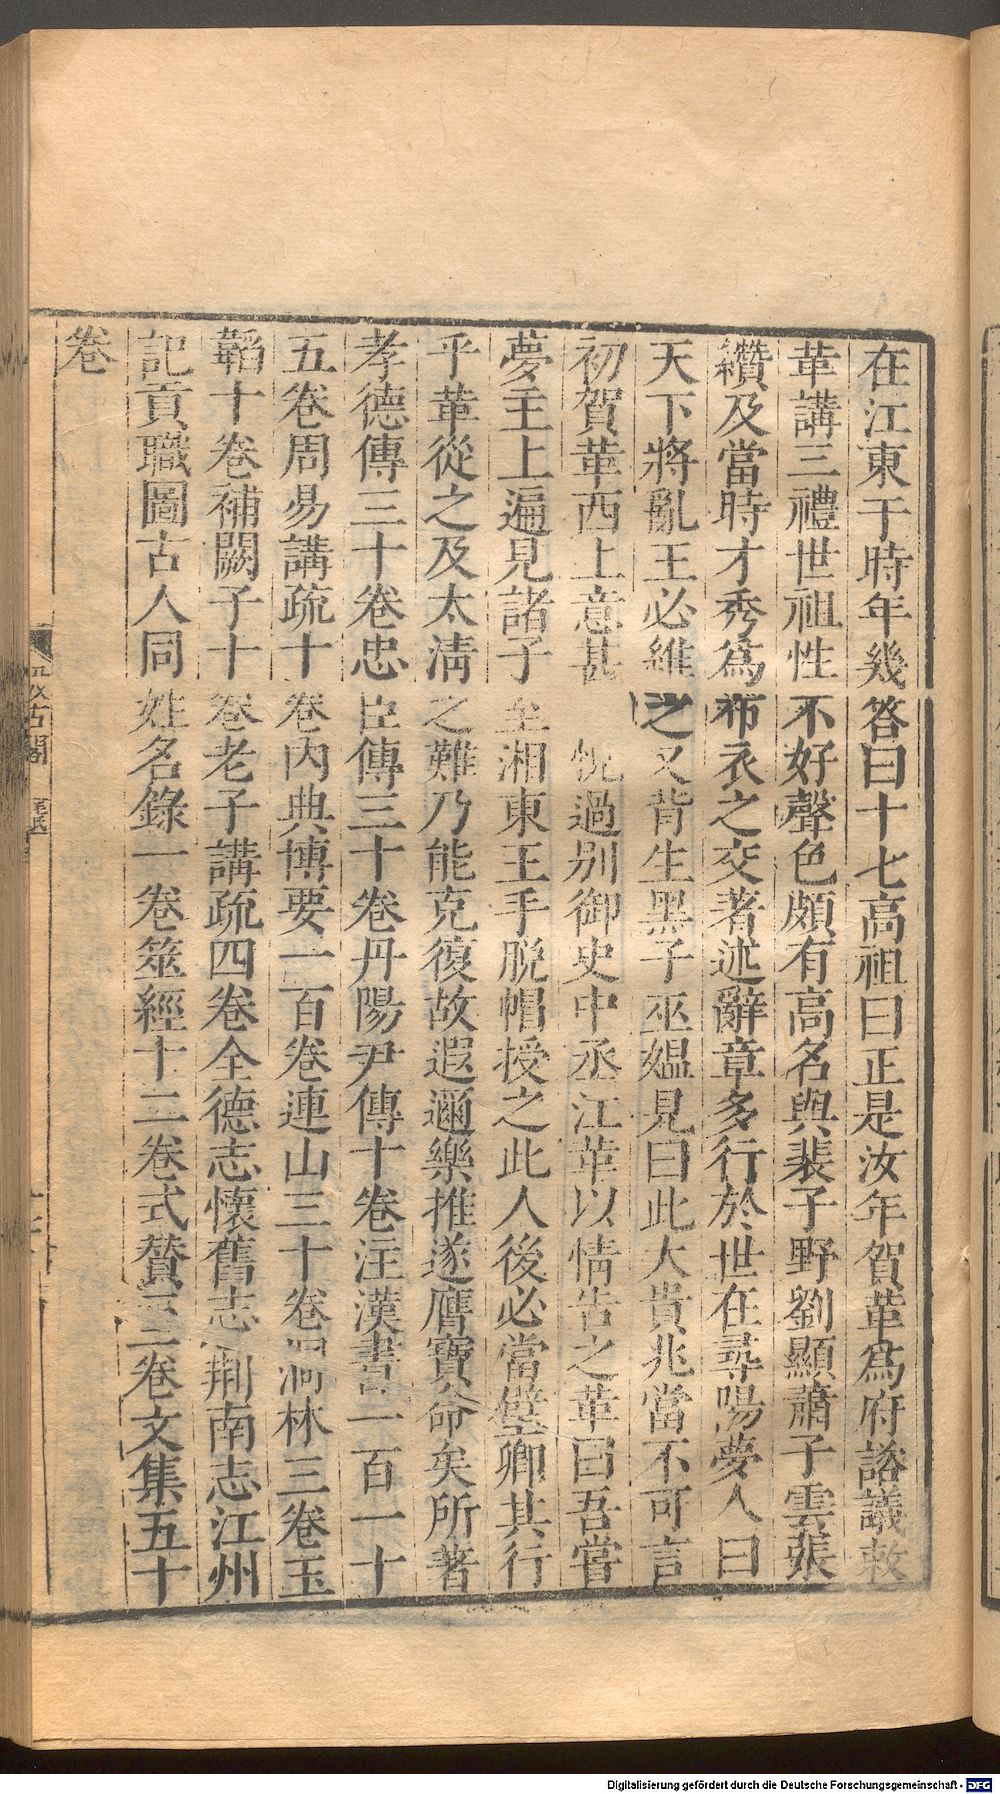 在江東于時年幾答曰十七高祖曰正是汝年賀革爲府諮議敕
革講三禮世祖性不好聲色頗有高名與裴子野劉顯蕭子雲張
纘及當時才秀爲布衣之交著述辭章多行於世在尋陽夢人曰
天下將亂王必維之又背生黑子巫媼見曰此大貴兆當不可言
初賀革西上意甚怏過别御史中丞江革以情告之革曰吾嘗
夢主上遍見諸子至湘東王手脫帽授之此人後必當璧卿其行
乎革從之及太淸之難乃能克復故遐邇樂推遂膺寶命矣所著
孝德傳三十卷忠臣傳三十卷丹陽尹傳十卷注漢書一百一十
五卷周易講疏十卷内典博要一百卷連山三十卷洞林三卷玉
韜十卷補闕子十卷老子講疏四卷全德志懷舊志荆南志江州
記貢職圖古人同姓名錄一卷筮經十二卷式贊三卷文集五十
卷
古閣
Digitalisierung gefördert durch die Deutsche Forschungsgemeinschaft - DFG